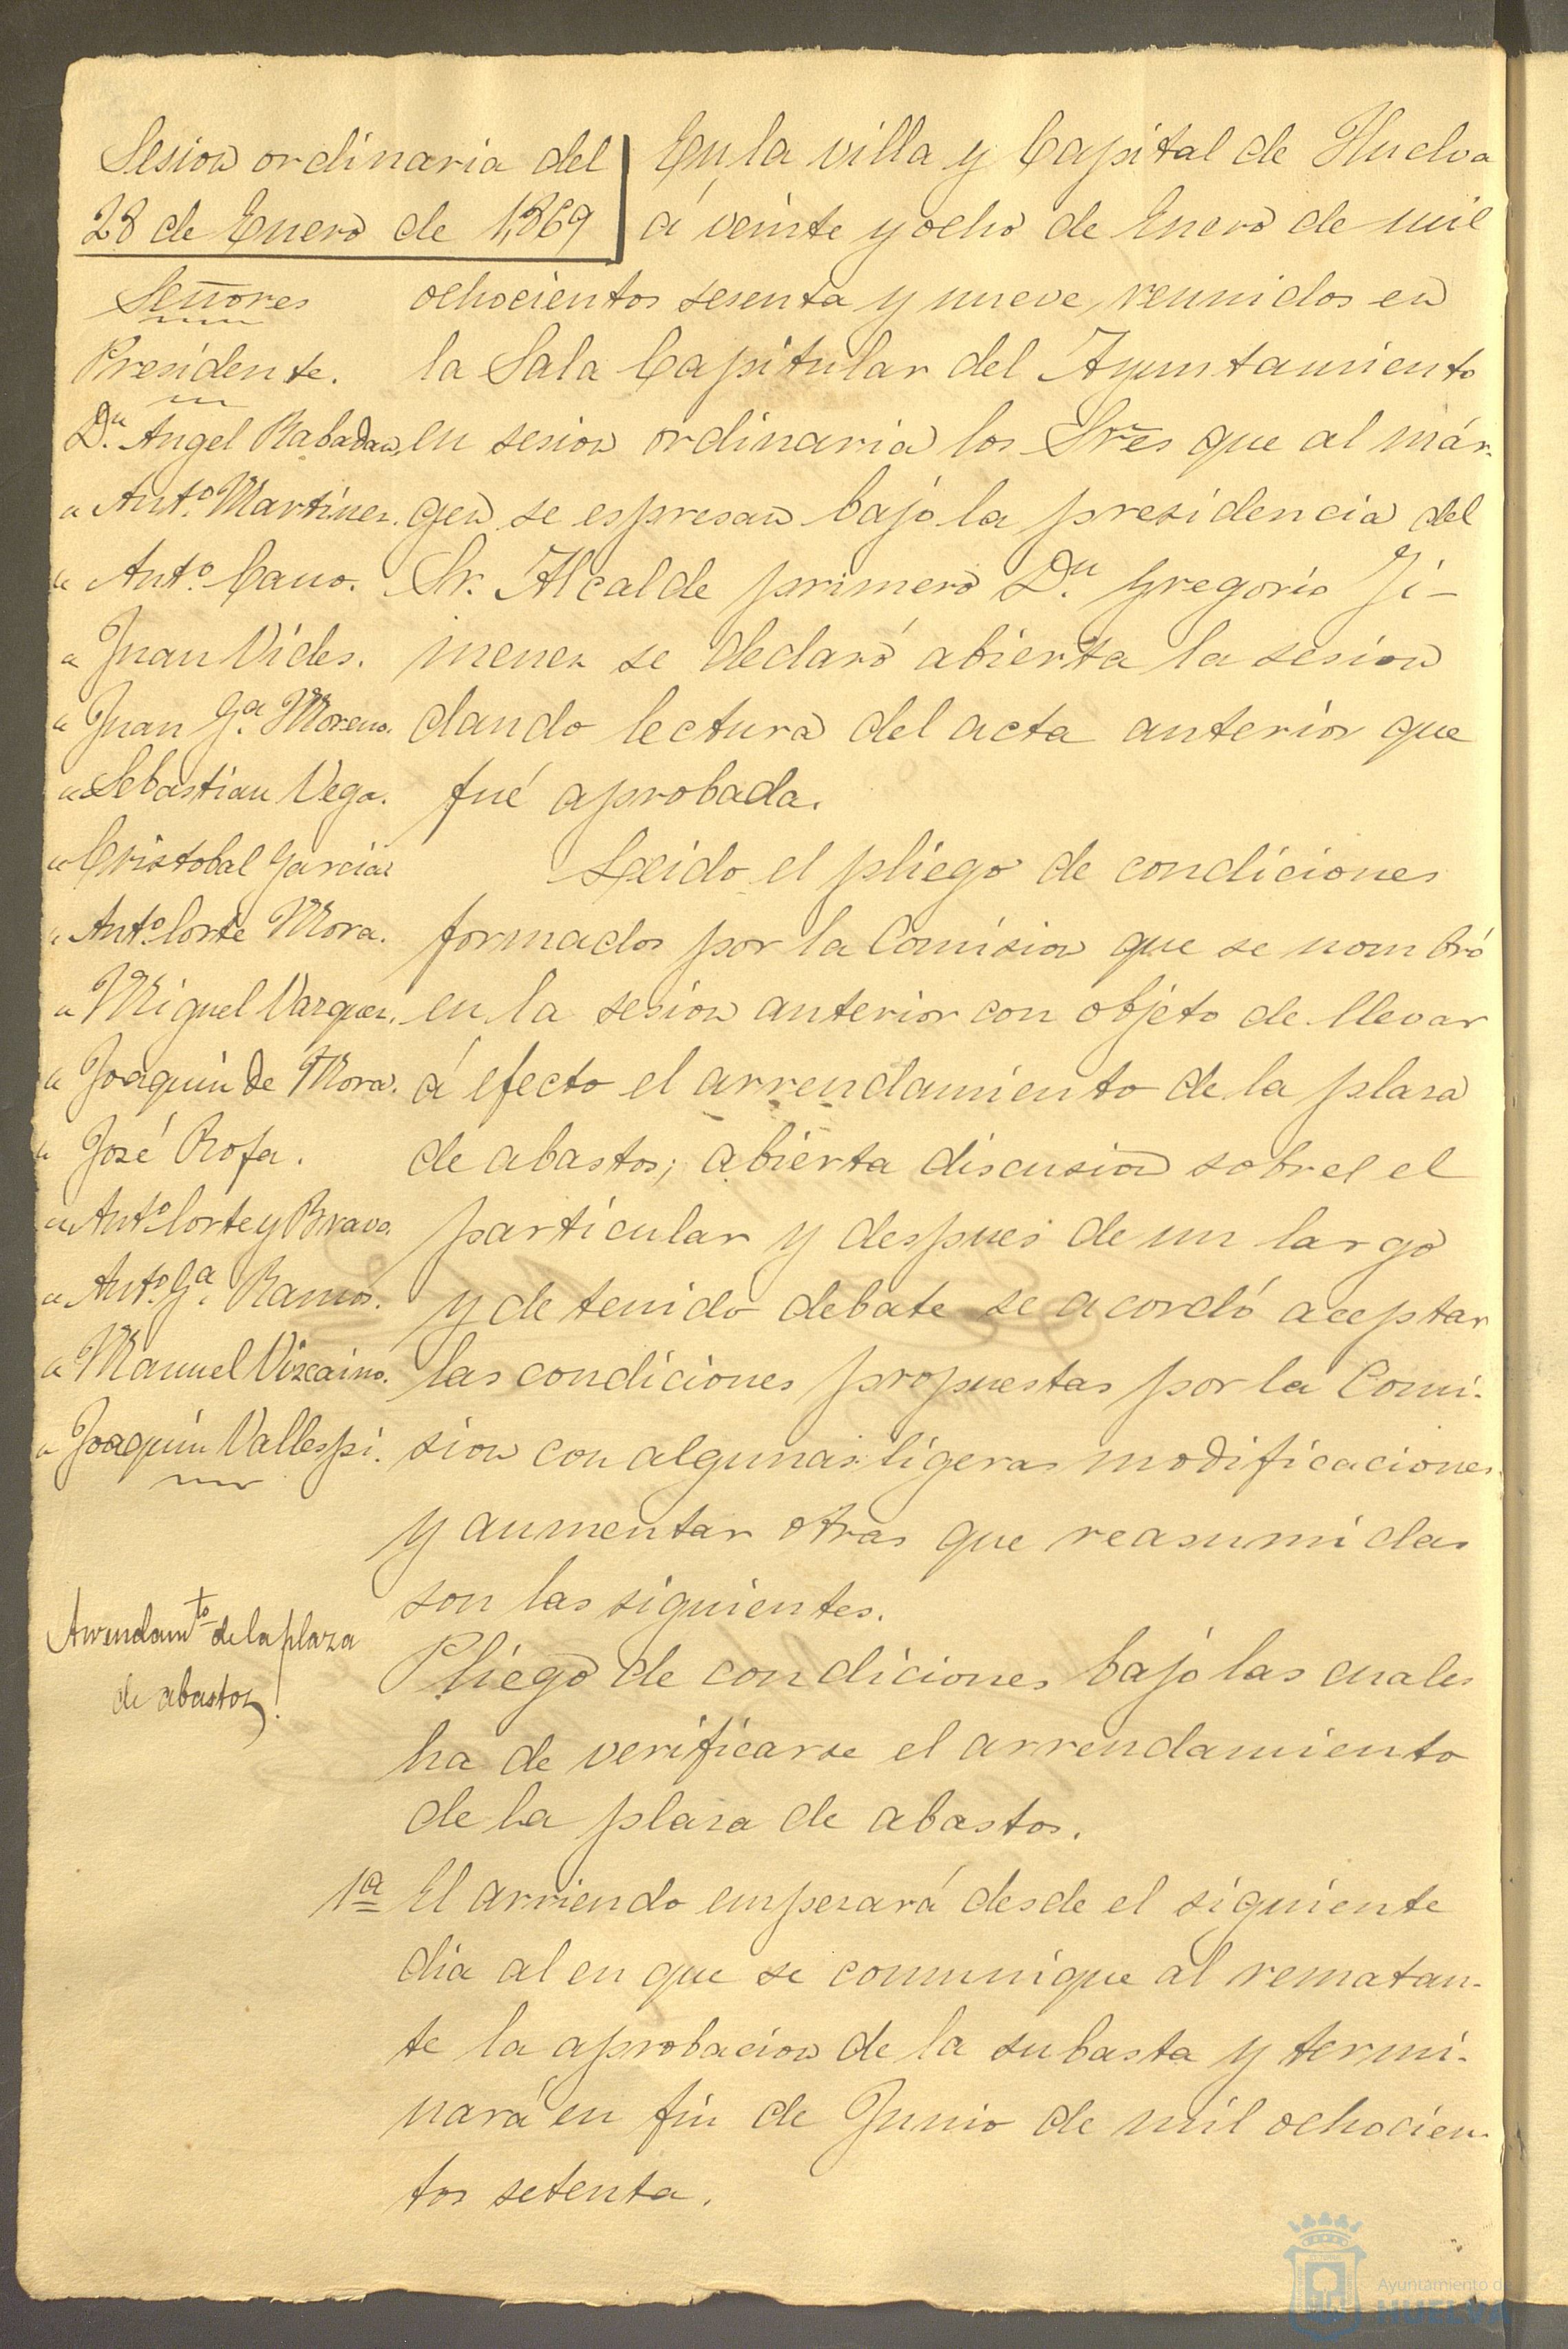 Sesion ordinaria del
28 de Enero de 1,869
Señores
Presidente.
Dn. Angel Rabadan,
" Antº. Martinez.
" Antº. Cano.
" Juan Vides.
" Juan Gª. Moreno.
" Sebastian Vega.
" Cristobal Garcia
" Antº. Corte Mora.
" Miguel Vazquez.
" Joaquin de Mora.
" José Rofa.
" Antº. Corte y Bravo.
" Antº. Gª. Ramos.
" Manuel Vizcaino.
" Joaquin Vallespi.
Arrendamto de la plaza
de abastos.
En la villa y Capital de Huelva
á veinte y ocho de Enero de mil
ochocientos sesenta y nueve, reunidos en
la Sala Capitular del Ayuntamiento
en sesion ordinaria los Sres que al már-
gen se espresan bajo la presidencia del
Sr. Alcalde primero Dn. Gregorio Ji-
menez se declaró abierta la sesion
dando lectura del acta anterior que
fué aprobada.
Leido el pliego de condiciones
formados por la Comision que se nombró
en la sesion anterior con objeto de llevar
á efecto el arrendamiento de la plaza
de abastos; abierta discusion sobre el el
particular y despues de un largo
y detenido debate se acordó aceptar
las condiciones propuestas por la Comi-
sion con algunas ligeras modificaciones
y aumentar otras que reasumidas
son las siguientes.
Pliego de condiciones bajo las cuales
ha de verificarse el arrendamiento
de la plaza de abastos.
1ª El arriendo empezará desde el siguiente
dia al en que se comunique al rematan-
te la aprobacion de la subasta y termi-
nará en fin de Junio de mil ochocien-
tos setenta.
Ayuntamiento de
HUELVA